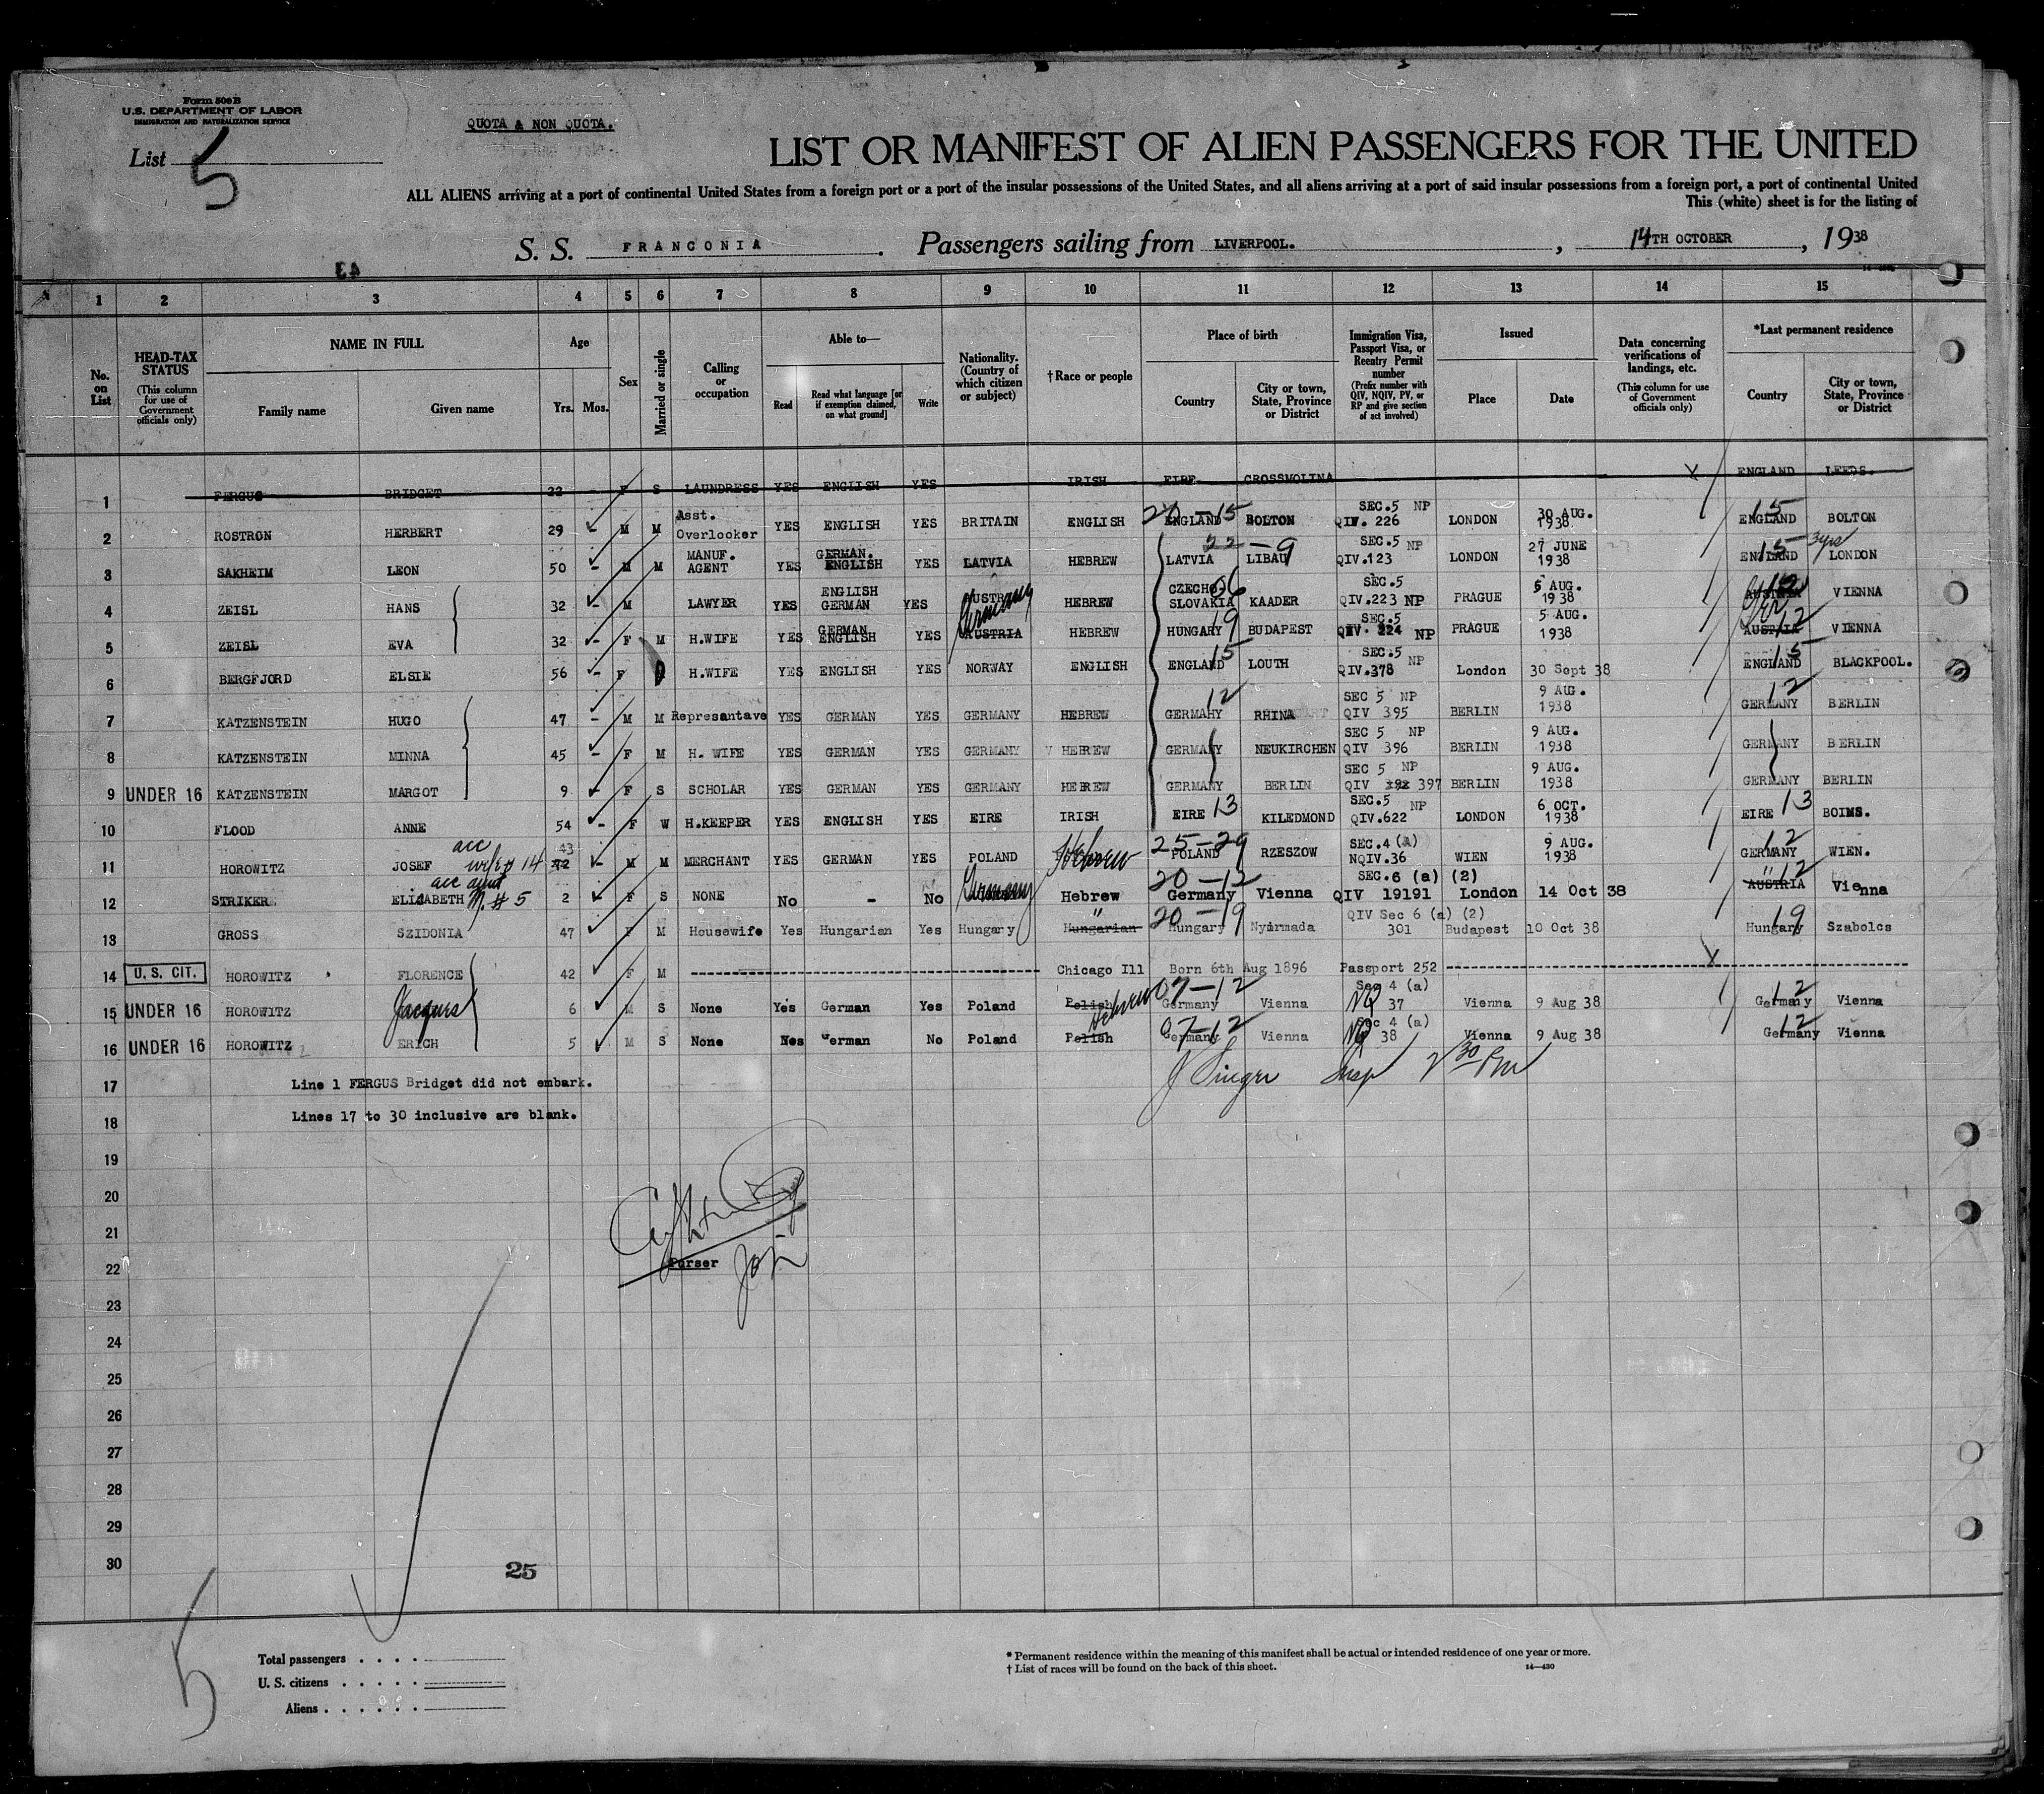 Form 500 B
U.S. DEPARTMENT OF LABOR
IMMIGRATION AND NATURALIZATION SERVICE
QUOTA & NON QUOTA.
List 5
LIST OR MANIFEST OF ALIEN PASSENGERS FOR THE UNITED
ALL ALIENS arriving at a port of continental United States from a foreign port or a port of the insular possessions of the United States, and all aliens arriving at a port of said insular possessions from a foreign port, a port of continental United
This (white) sheet is for the listing of
S. S. FRANCONIA . Passengers sailing from LIVERPOOL. , 14TH OCTOBER , 1938
1 2 3 4 5 6 7 8 9 10 11 12 13 14 15
No. on List
HEAD-TAX STATUS (This column for use of Government officials only)
NAME IN FULL
Family name Given name
Age
Yrs. Mos.
Sex
Married or single
Calling or occupation
Able to—
Read Read what language [or if exemption claimed, on what ground] Write
Nationality. (Country of which citizen or subject)
†Race or people
Place of birth
Country City or town, State, Province or District
Immigration Visa, Passport Visa, or Reentry Permit number (Prefix number with QIV, NQIV, PV, or RP and give section of act involved)
Issued
Place Date
Data concerning verifications of landings, etc. (This column for use of Government officials only)
*Last permanent residence
Country City or town, State, Province or District
1 FERGUS BRIDGET 22 - F S LAUNDRESS YES ENGLISH YES IRISH EIRE CROSSMOLINA ENGLAND LEEDS.
2 ROSTRON HERBERT 29 - M M Asst. Overlooker YES ENGLISH YES BRITAIN ENGLISH 20-15 ENGLAND BOLTON SEC.5 NP QIV. 226 LONDON 30 AUG. 1938 15 ENGLAND BOLTON
3 SAKHEIM LEON 50 - M M MANUF. AGENT YES GERMAN. ENGLISH YES LATVIA HEBREW 22-9 LATVIA LIBAU SEC.5 NP QIV.123 LONDON 27 JUNE 1938 15 ENGLAND 3yrs LONDON
4 ZEISL HANS 32 - M LAWYER YES ENGLISH GERMAN YES AUSTRIA Germany HEBREW CZECHO SLOVAKIA KAADER SEC.5 QIV.223 NP PRAGUE 5 AUG. 1938 AUSTRIA 12 VIENNA
5 ZEISL EVA 32 - F M H.WIFE YES GERMAN ENGLISH YES AUSTRIA HEBREW HUNGARY 19 BUDAPEST SEC.5 QIV. 224 NP PRAGUE 5 AUG. 1938 AUSTRIA 12 VIENNA
6 BERGFJORD ELSIE 56 - F H.WIFE YES ENGLISH YES NORWAY ENGLISH ENGLAND 15 LOUTH SEC.5 NP QIV.378 London 30 Sept 38 ENGLAND 15 BLACKPOOL.
7 KATZENSTEIN HUGO 47 - M M Represantave YES GERMAN YES GERMANY HEBREW 12 GERMAHY RHINA SEC 5 NP QIV 395 BERLIN 9 AUG. 1938 12 GERMANY BERLIN
8 KATZENSTEIN MINNA 45 - F M H. WIFE YES GERMAN YES GERMANY HEBREW GERMANY NEUKIRCHEN SEC 5 NP QIV 396 BERLIN 9 AUG. 1938 GERMANY BERLIN
9 UNDER 16 KATZENSTEIN MARGOT 9 - F S SCHOLAR YES GERMAN YES GERMANY HEBREW GERMANY BERLIN SEC 5 NP QIV 397 BERLIN 9 AUG. 1938 GERMANY BERLIN
10 FLOOD ANNE 54 - F W H.KEEPER YES ENGLISH YES EIRE IRISH EIRE 13 KILEDMOND SEC.5 NP QIV.622 LONDON 6 OCT. 1938 EIRE 13 BOIMS.
11 HOROWITZ JOSEF acc wife # 14 43 42 - M M MERCHANT YES GERMAN YES POLAND Hebrew 25-29 POLAND RZESZOW SEC.4 (A) NQIV.36 WIEN 9 AUG. 1938 12 GERMANY WIEN.
12 STRIKER ELIZABETH acc aunt M. # 5 2 F S NONE No - No Germany Hebrew 20-12 Germany Vienna SEC.6 (a) (2) QIV 19191 London 14 Oct 38 " 12 AUSTRIA Vienna
13 GROSS SZIDONIA 47 F M Housewife Yes Hungarian Yes Hungary " Hungarian 20-19 Hungary Nyirmada QIV Sec 6 (a) (2) 301 Budapest 10 Oct 38 19 Hungary Szabolcs
14 U. S. CIT. HOROWITZ FLORENCE 42 F M Chicago Ill Born 6th Aug 1896 Passport 252
15 UNDER 16 HOROWITZ Jacques 6 M S None Yes German Yes Poland Polish Hebrew 07-12 Germany Vienna Sec 4 (a) NQ 37 Vienna 9 Aug 38 12 Germany Vienna
16 UNDER 16 HOROWITZ ERICH 5 M S None German No Poland Polish 07-12 Germany Vienna Sec 4 (a) NQ 38 Vienna 9 Aug 38 12 Germany Vienna
17 Line 1 FERGUS Bridget did not embark.
J Singer Insp 2 30 PM
18 Lines 17 to 30 inclusive are blank.
19
20
21
22 Purser
23
24
25
26
27
28
29
30
25
5
Total passengers . . . .
U. S. citizens . . . . .
Aliens . . . . . .
* Permanent residence within the meaning of this manifest shall be actual or intended residence of one year or more.
† List of races will be found on the back of this sheet.
14—430